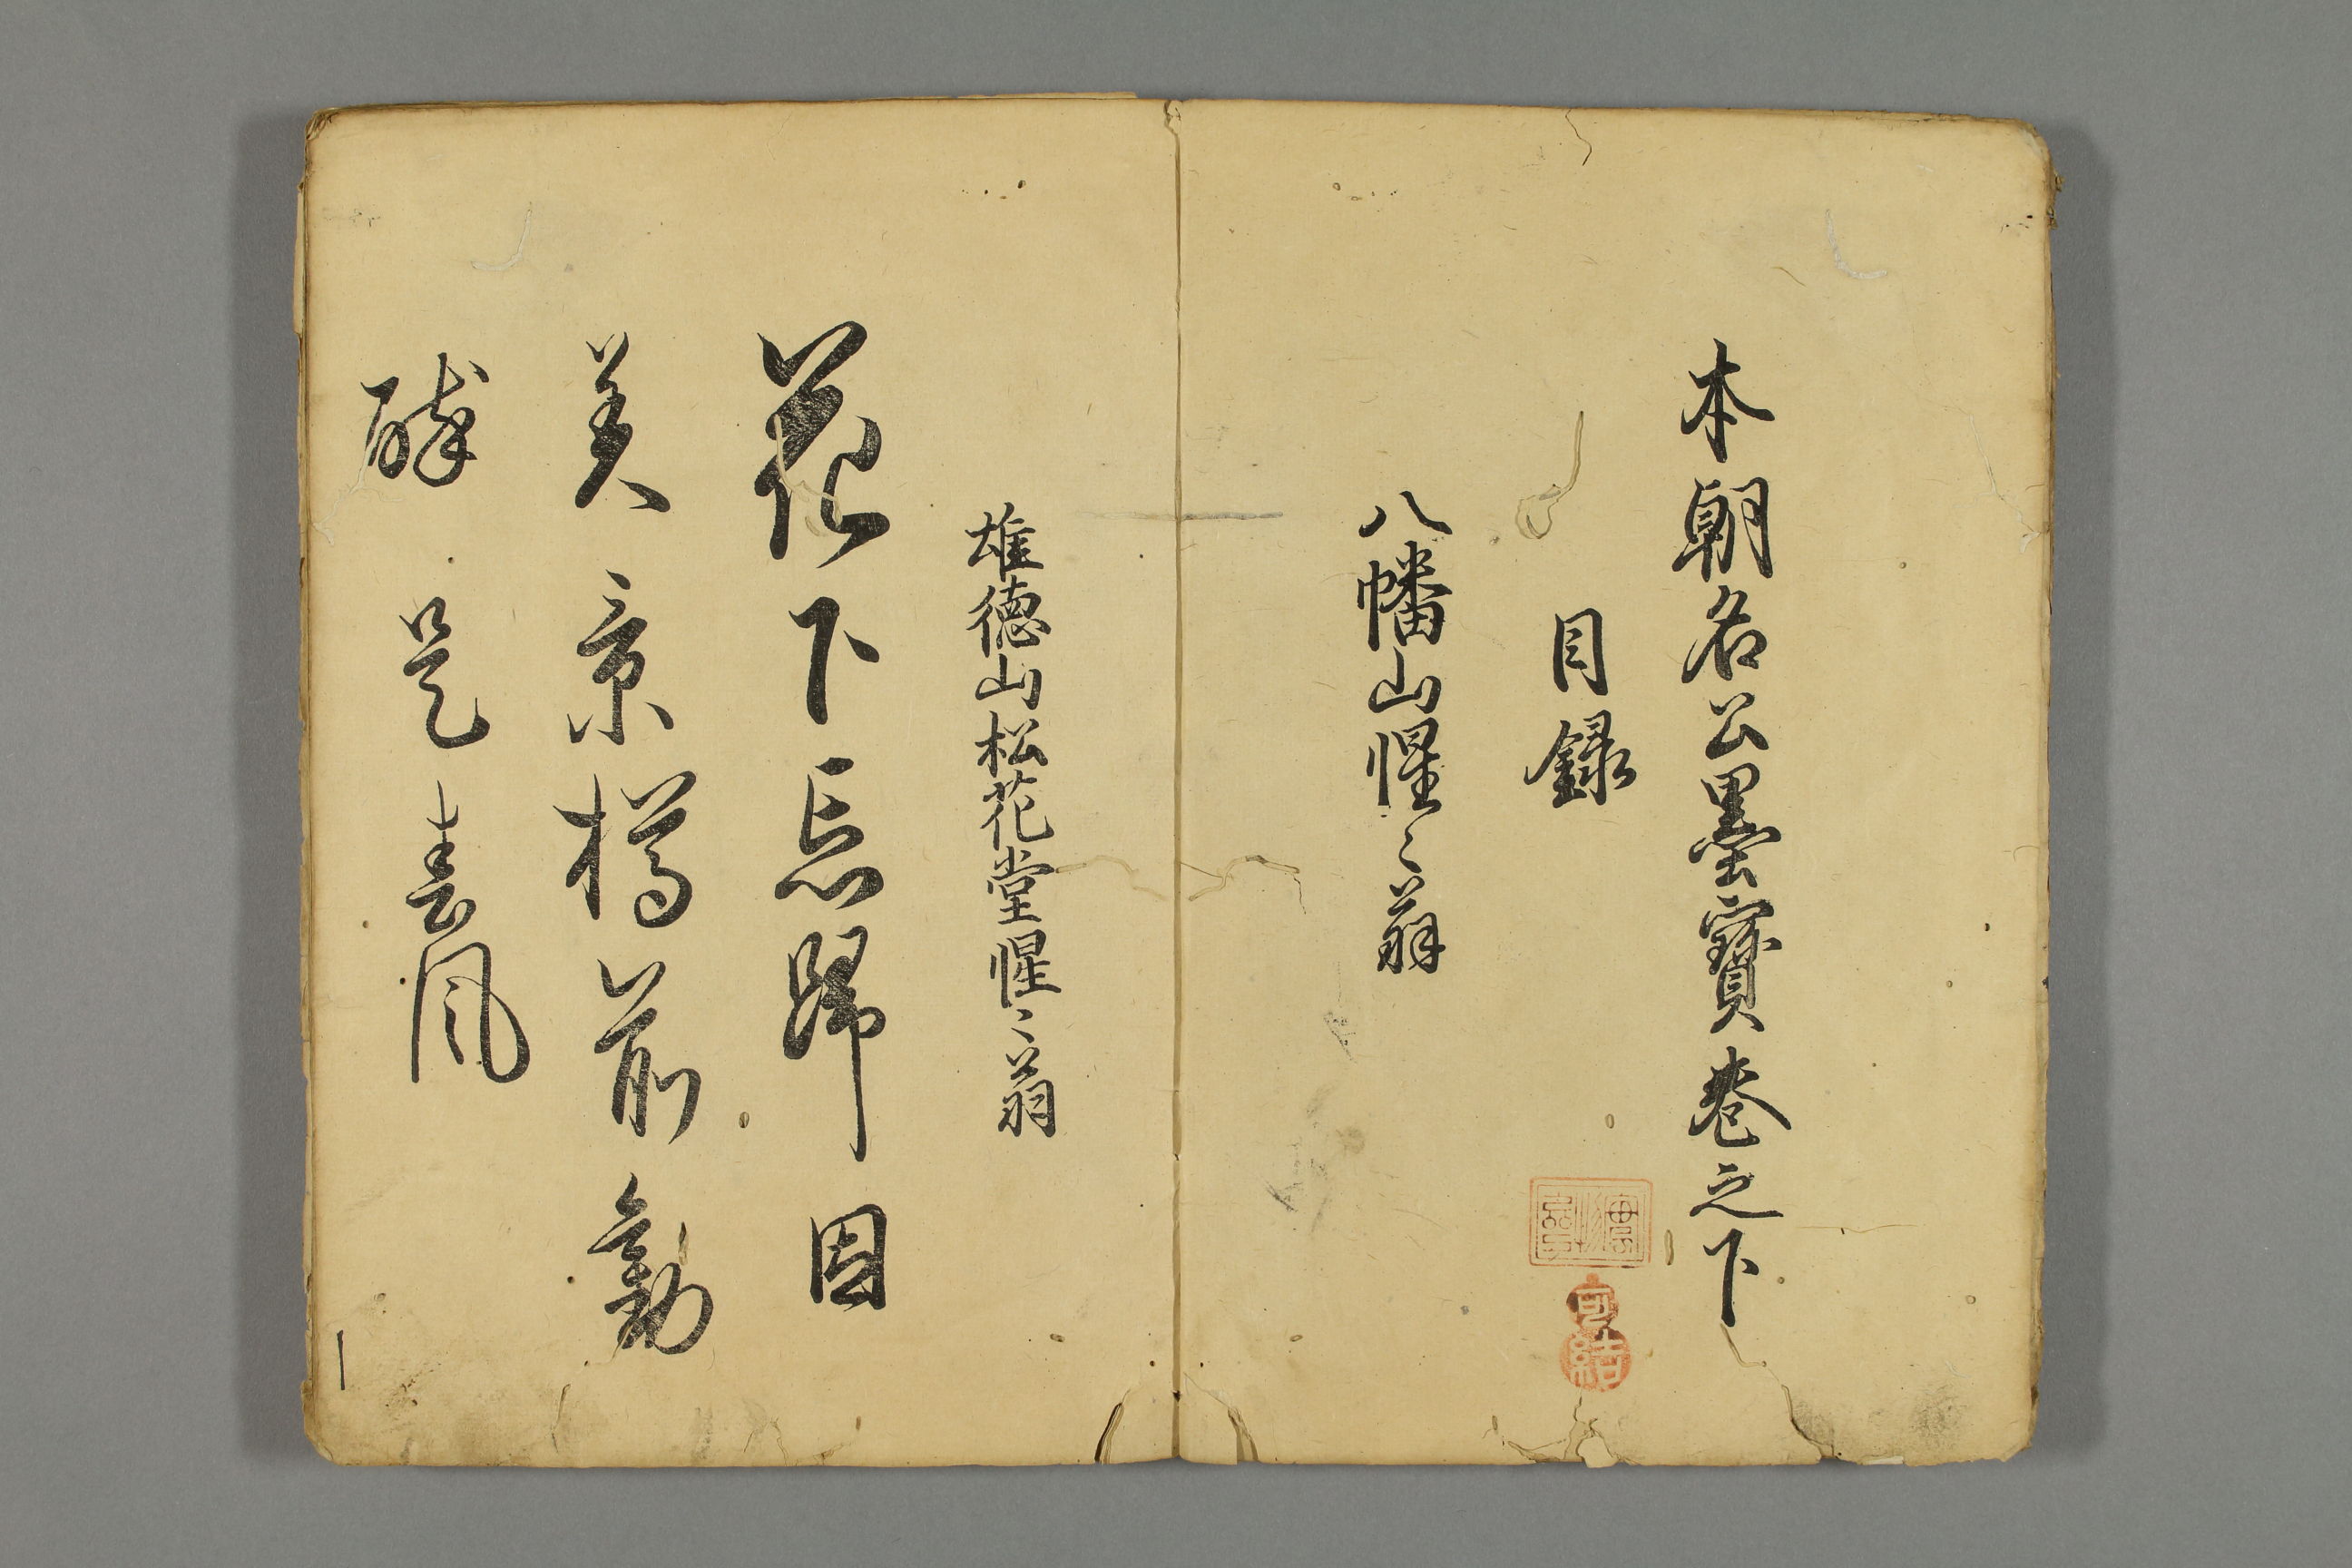 本朝名公墨寳巻之下
目録
八幡山惺〻翁
雄徳山松花堂惺〻翁
花下忘歸因
美景樽前勸
酔是春風